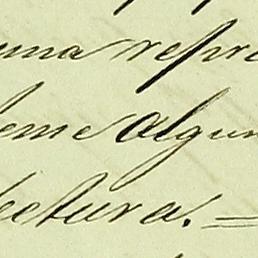 una repre
leme algun
lectura. =